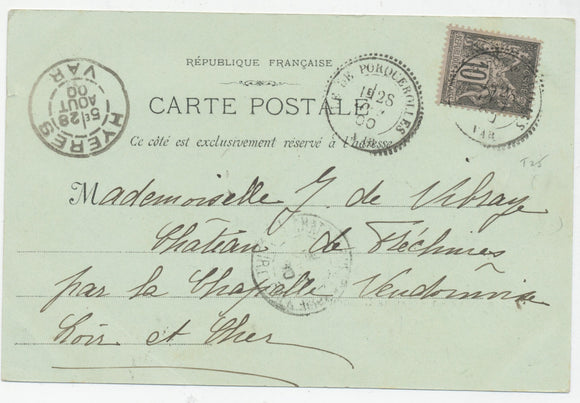 RÉPUBLIQUE FRANÇAISE
CARTE POSTALE
Ce côté est exclusivement réservé à l'adresse
HYERES
5E
28
AOUT
00
VAR
ILE DE PORQUEROLLES
28
00
VAR
10
Mademoiselle J. de Vibraye
Château de Fléchines
par la Chapelle Vendômoise
Loir et Cher